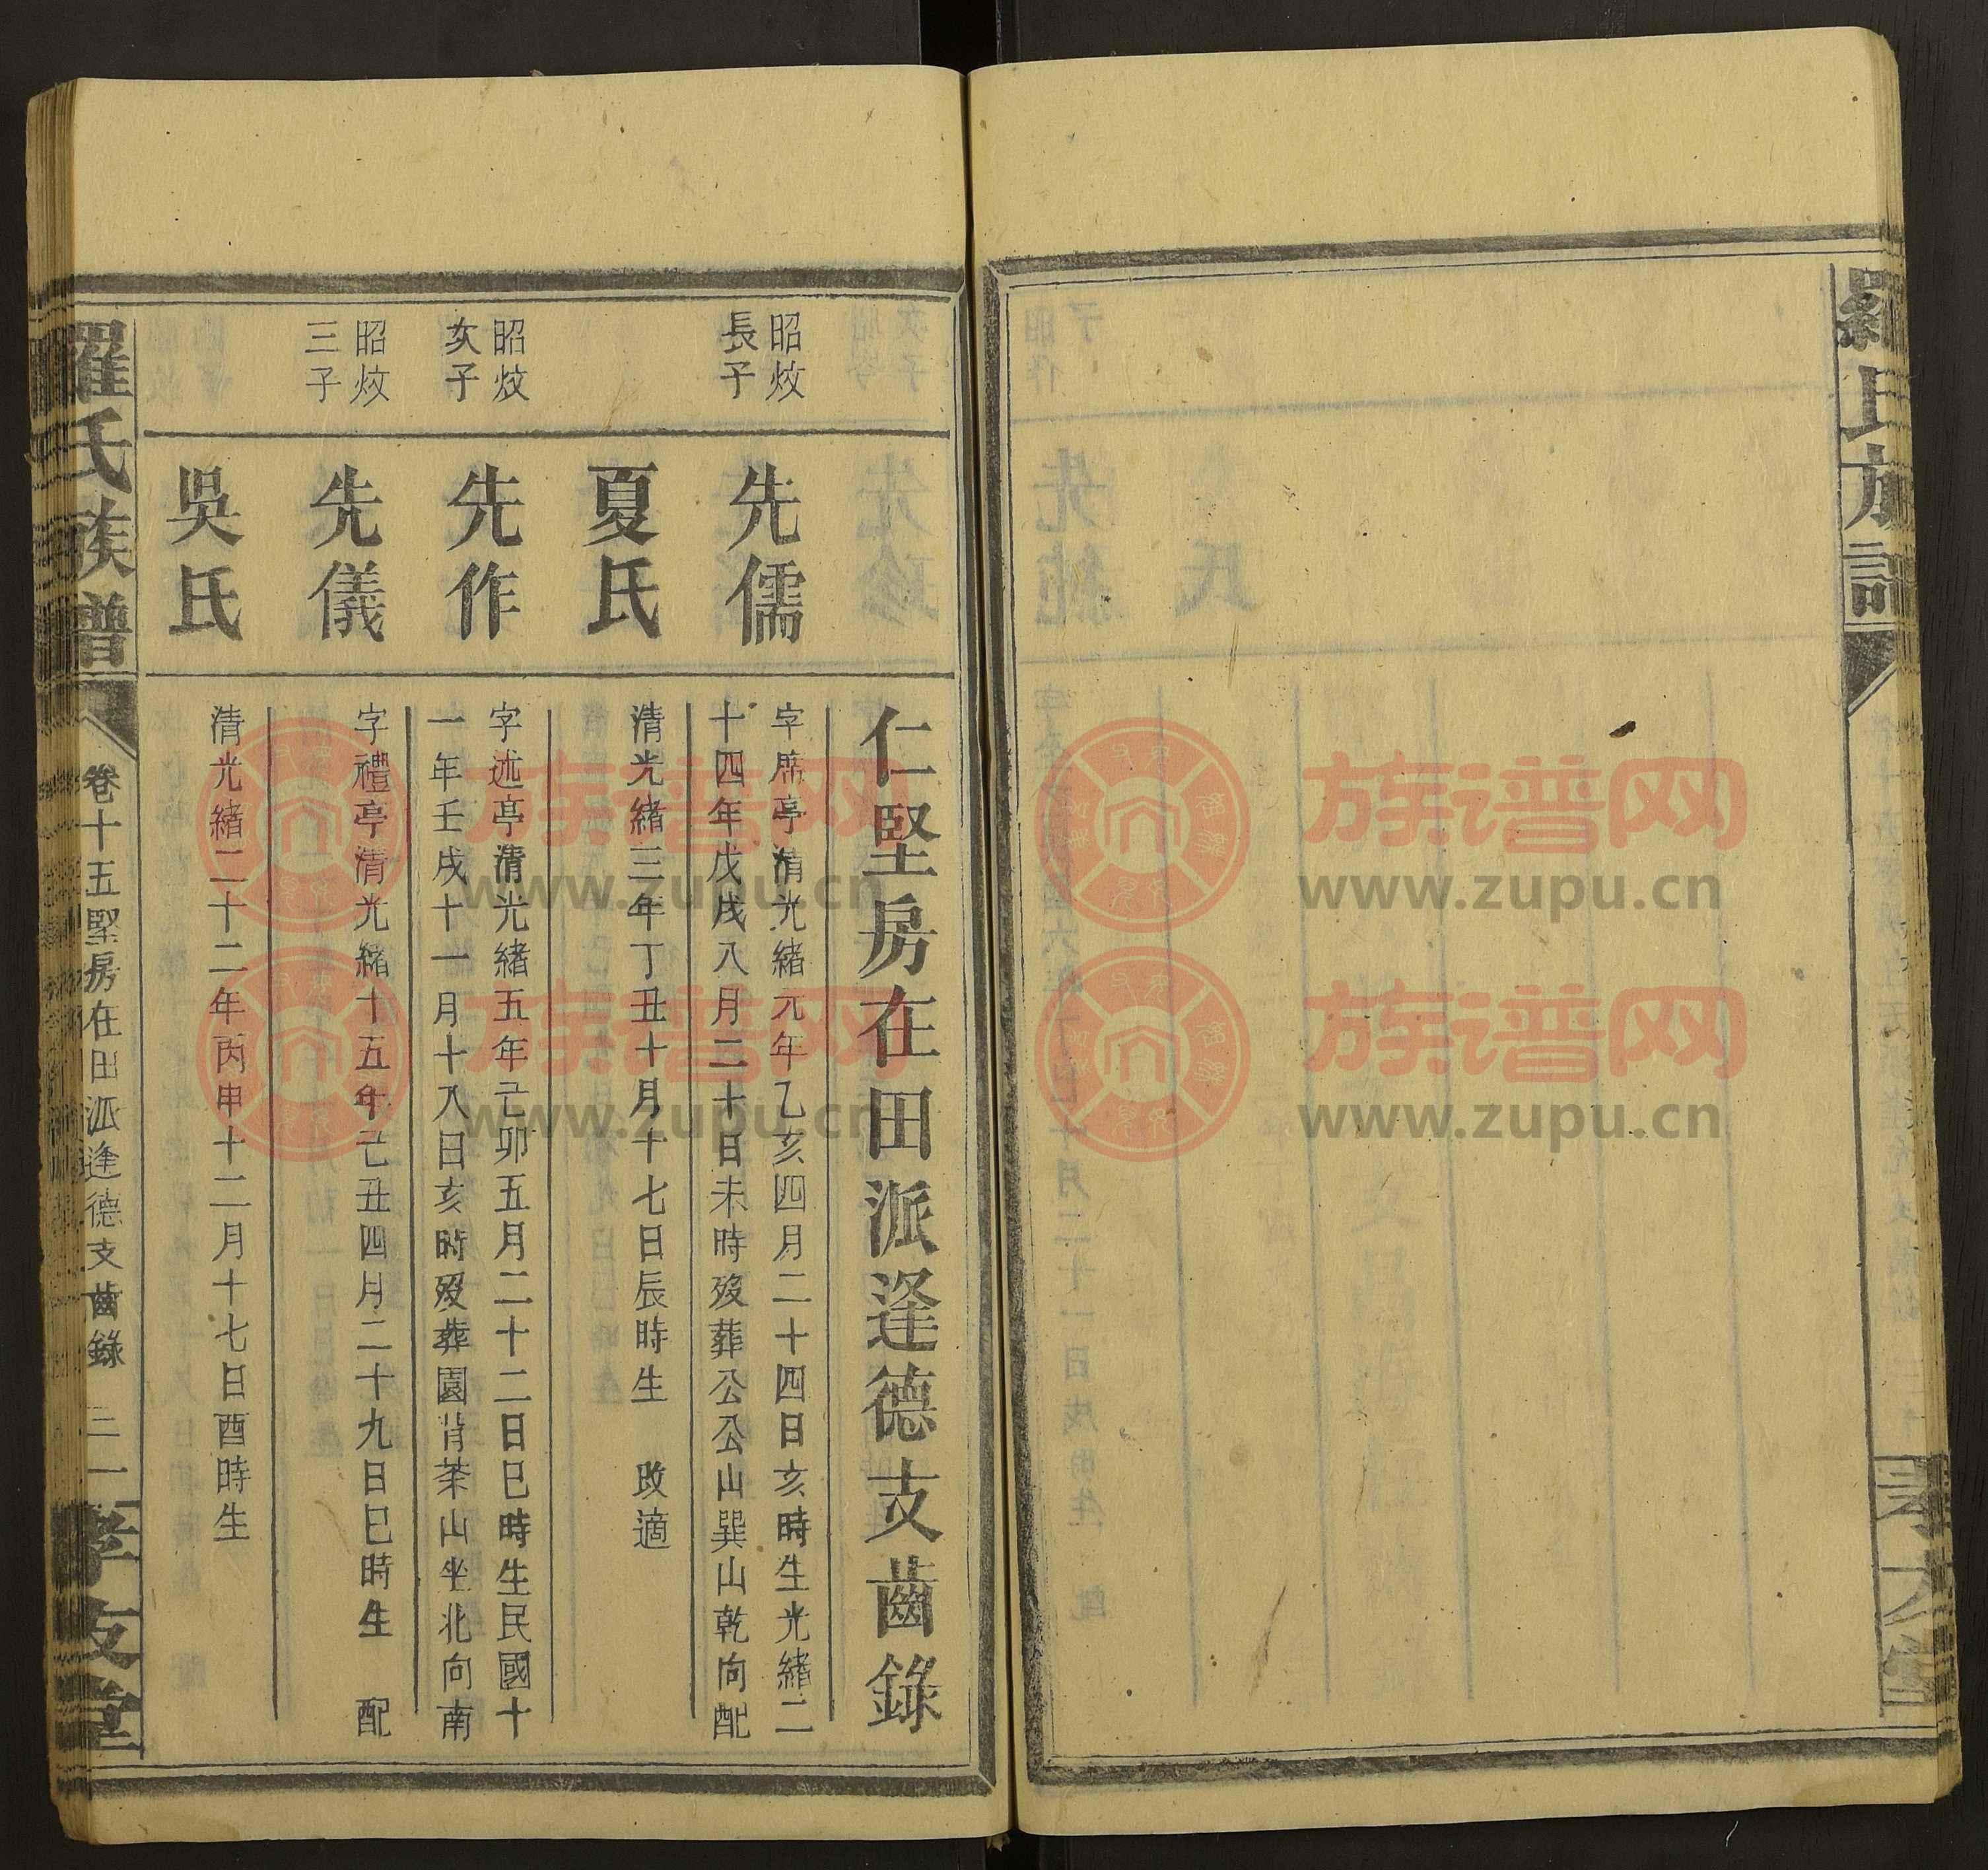 羅氏族譜
仁堅房在田派逢德支齒錄
昭炆
長子
先儒
字席亭清光緒元年乙亥四月二十四日亥時生光緒二
十四年戊戌八月二十日未時歿葬公公山巽山乾向配
夏氏
清光緒三年丁丑十月十七日辰時生 改適
昭炆
次子
先作
字述亭清光緒五年己卯五月二十二日巳時生民國十
一年壬戌十一月十八日亥時歿葬園背茶山坐北向南
昭炆
三子
先儀
字禮亭清光緒十五年己丑四月二十九日巳時生 配
吳氏
清光緒二十二年丙申十二月十七日酉時生
羅氏族譜
卷十五堅房在田派逢德支齒錄
三一
孝友堂
族谱网
www.zupu.cn
族谱网
www.zupu.cn
族谱网
www.zupu.cn
族谱网
www.zupu.cn